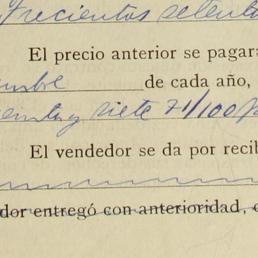 trecientos setenta
El precio anterior se pagar
embre de cada año,
einta y siete 71/100 p
El vendedor se da por recib
dor entregó con anterioridad, c